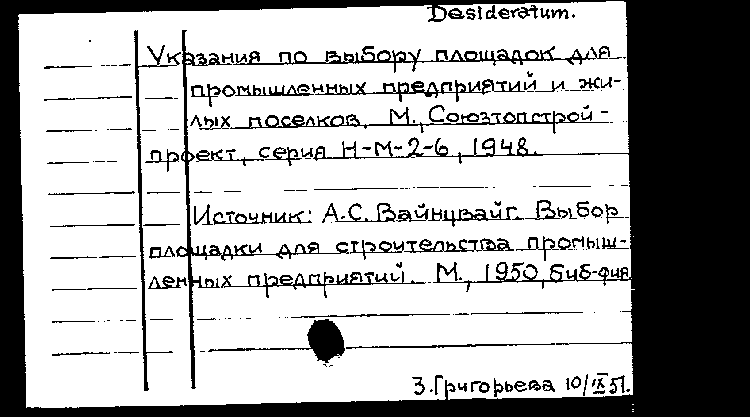 Desideratum.
Указания по выбору площадок для
промышленных предприятий и жи-
лых поселков. М., Союзтопстрой-
проект, серия Н-М-2-6, 1948.
Источник: А.С. Вайнцвайг. Выбор
площадки для строительства промыш-
ленных предприятий. М., 1950, биб-фия
З.Григорьева 10/IX 51.